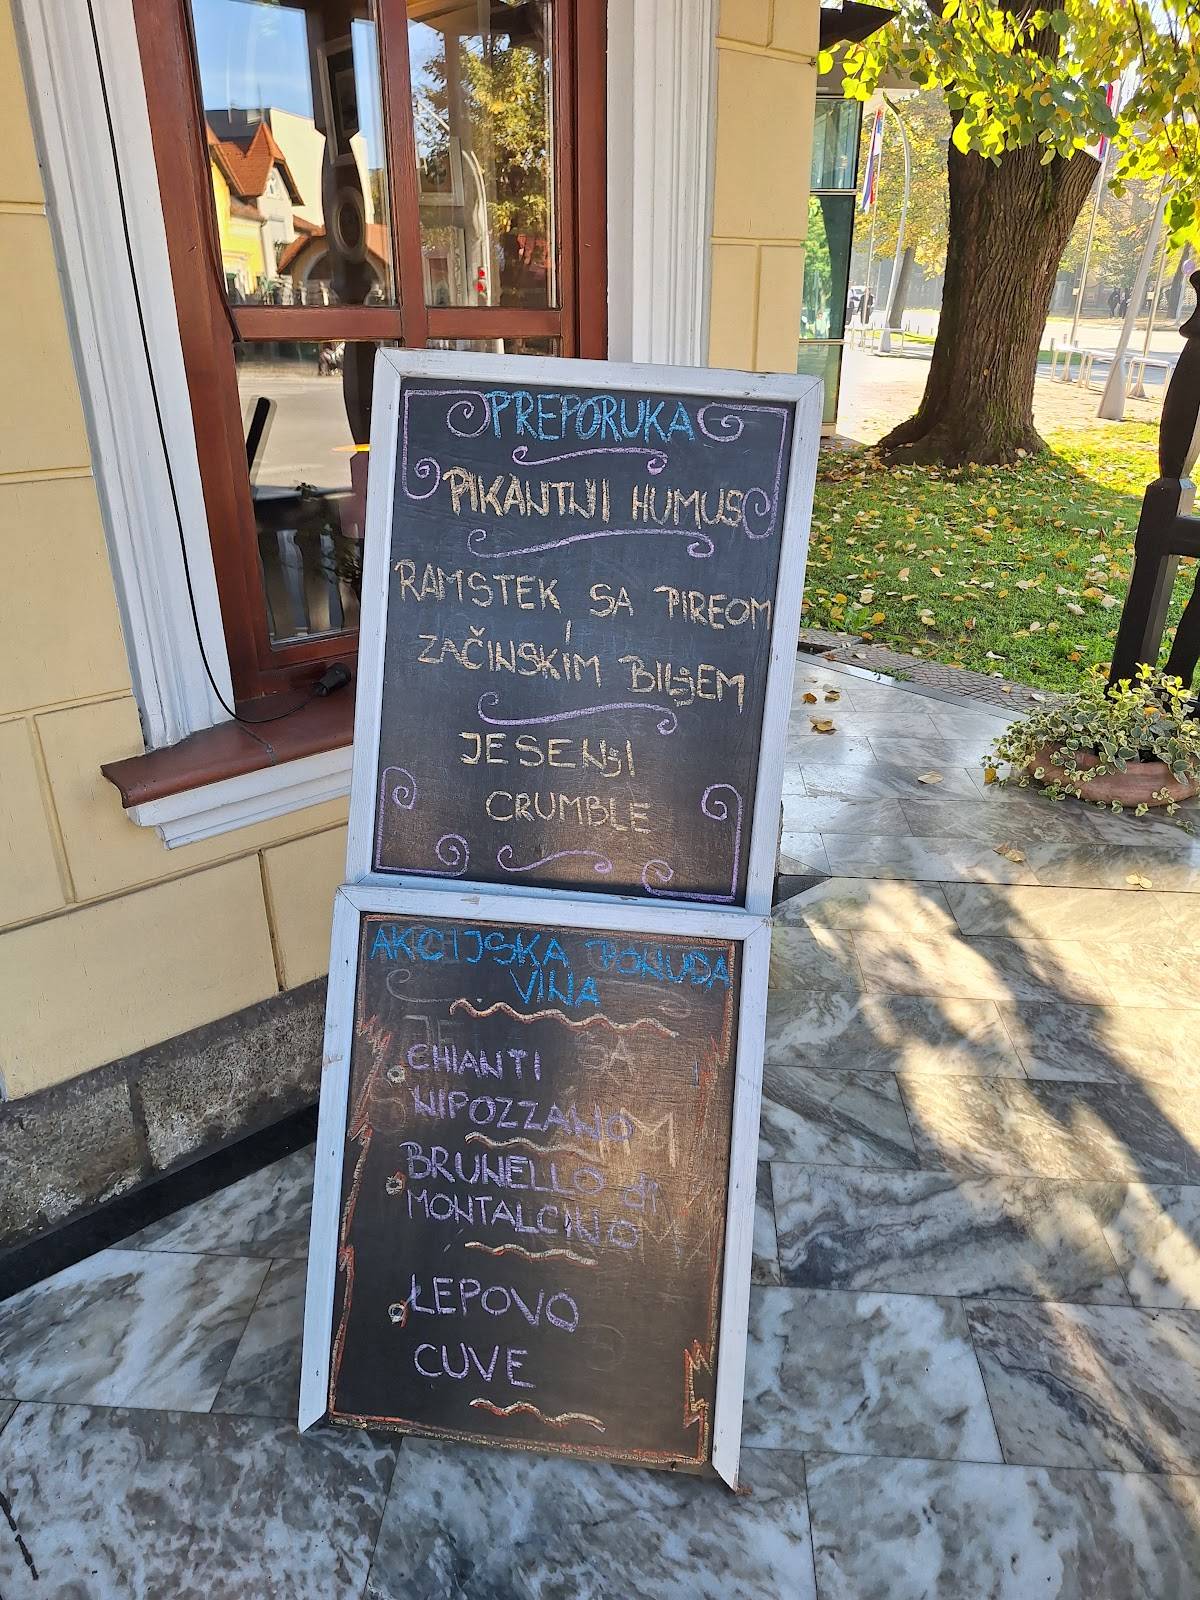 PREPORUKA
PIKANTNI HUMUS
RAMSTEK SA PIREOM
I
ZAČINSKIM BILJEM
JESENJI
CRUMBLE
AKCIJSKA PONUDA
VINA
CHIANTI
NIPOZZANO
BRUNELLO di
MONTALCINO
LEPOVO
CUVE